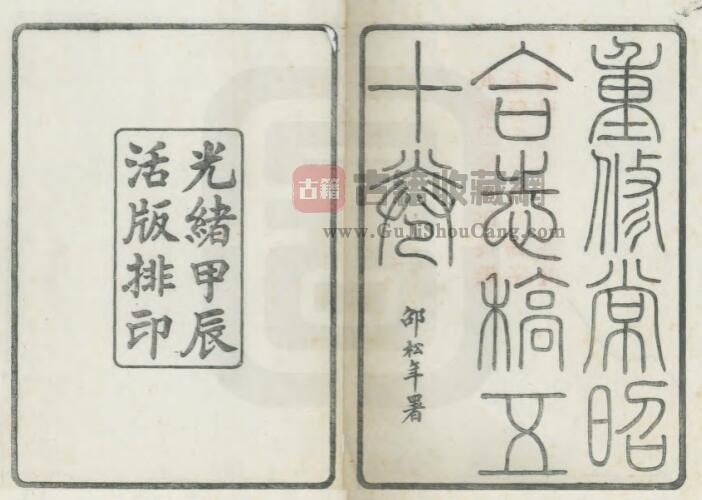 重修常昭
合志稿五
十卷
邵松年署
光緒甲辰
活版排印
古籍
古籍收藏網
www.GuJiShouCang.com